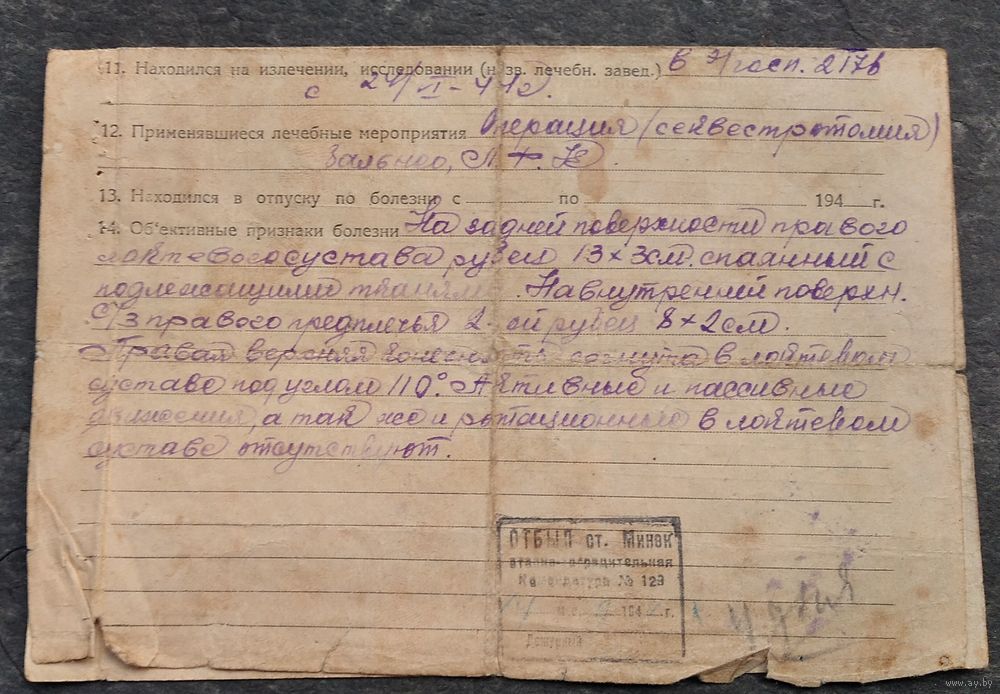 11. Находился на излечении, исследовании (назв. лечебн. завед.) В Э/госп. 2176
с 24/I-44г.
12. Применявшиеся лечебные мероприятия Операция (секвестротомия)
13. Находился в отпуску по болезни с по 194 г.
14. Об'ективные признаки болезни На задней поверхности правого
локтевого сустава рубец 13×3см. спаянный с
подлежащими тканями. На внутренней поверхн.
с/з правого предплечья 2-ой рубец 8×2см.
Правая верхняя конечность согнута в локтевом
суставе под углом 110° Активные и пассивные
движения, а так же и ротационные в локтевом
суставе отсутствуют.
ОТБЫЛ ст. Минск
Комендатура № 129
194 г.
Дежурный
www.ay.by